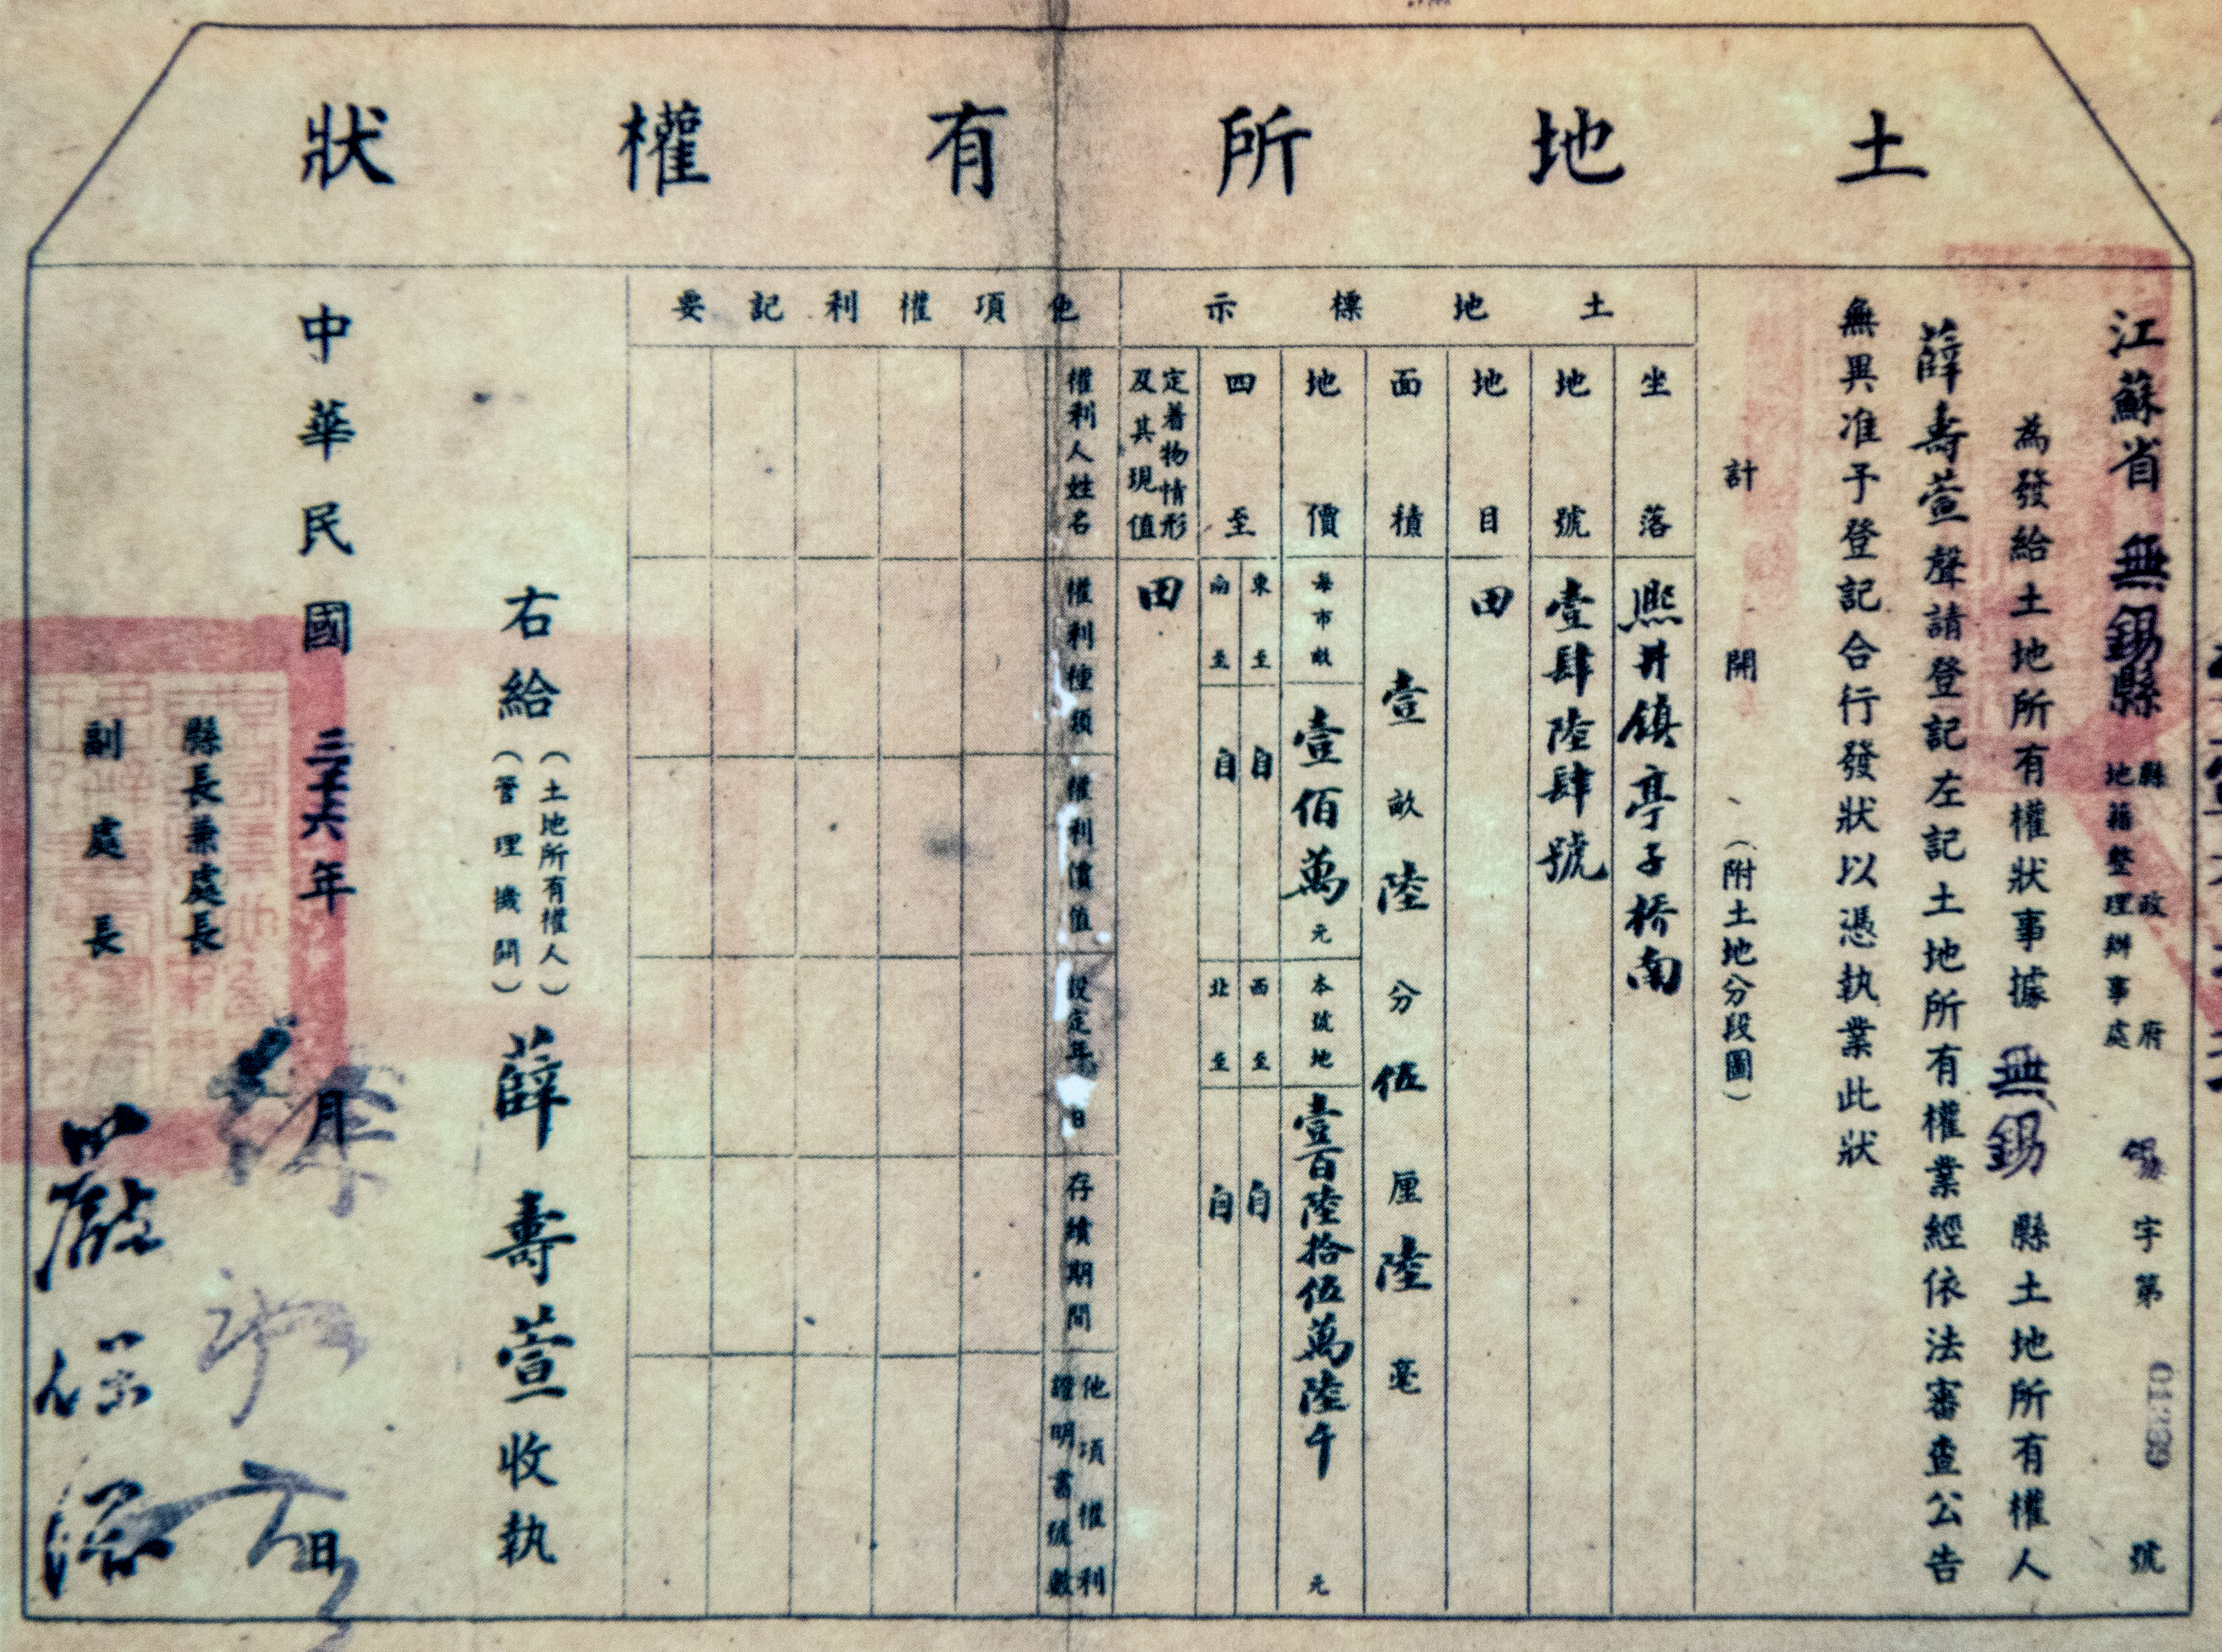 土地所有權狀
江蘇省無錫縣縣政府地籍整理辦事處 字第 號
為發給土地所有權狀事據無錫縣土地所有權人
薛壽萱聲請登記左記土地所有權業經依法審查公告
無異准予登記合行發狀以憑執業此狀
計開(附土地分段圖)
土地標示
坐落 熙井鎮亭子橋南
地號 壹肆陸肆號
地目 田
面積 壹畝陸分伍厘陸毫
地價 每市畝 壹佰萬元 本號地 壹百陸拾伍萬陸千元
四至 東至 自 西至 自
南至 自 北至 自
定着物情形及其現值 田
他項權利記要
權利人姓名 權利種類 權利價值 設定年月日 存續期間 他項權利證明書號數
右給(土地所有權人)(管理機關)薛壽萱收執
中華民國三十六年 月 日
縣長兼處長
副處長